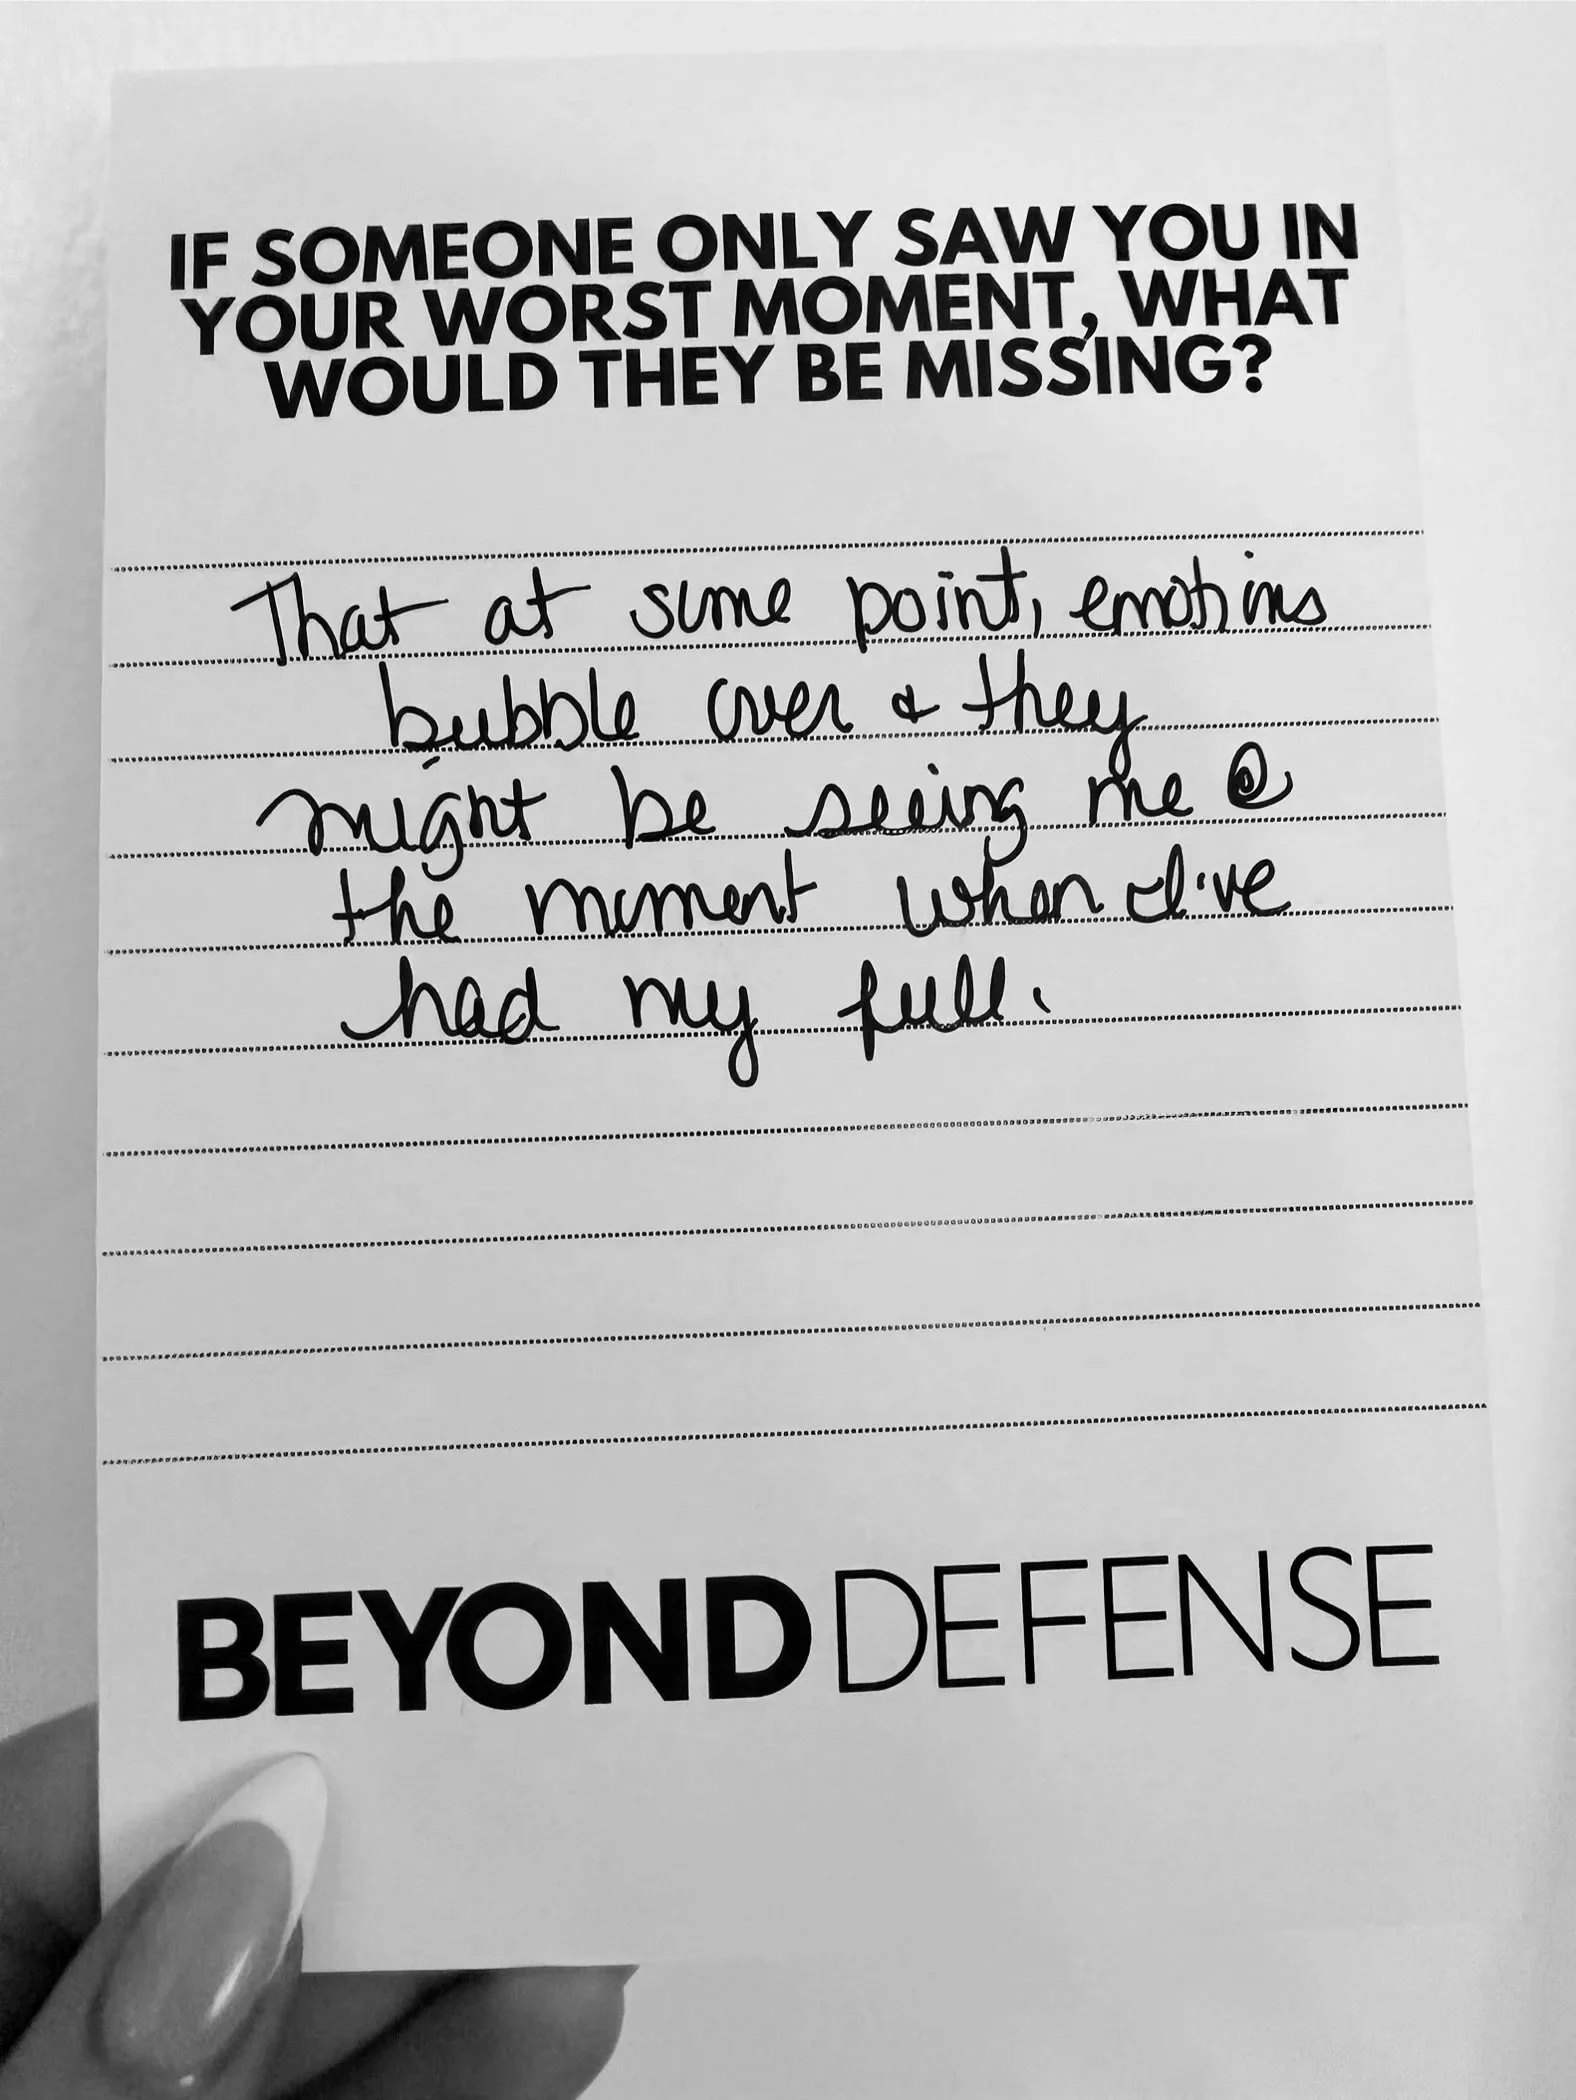 IF SOMEONE ONLY SAW YOU IN
YOUR WORST MOMENT, WHAT
WOULD THEY BE MISSING?
That at some point, emotions
bubble over & they
might be seeing me @
the moment when I've
had my full.
BEYONDDEFENSE